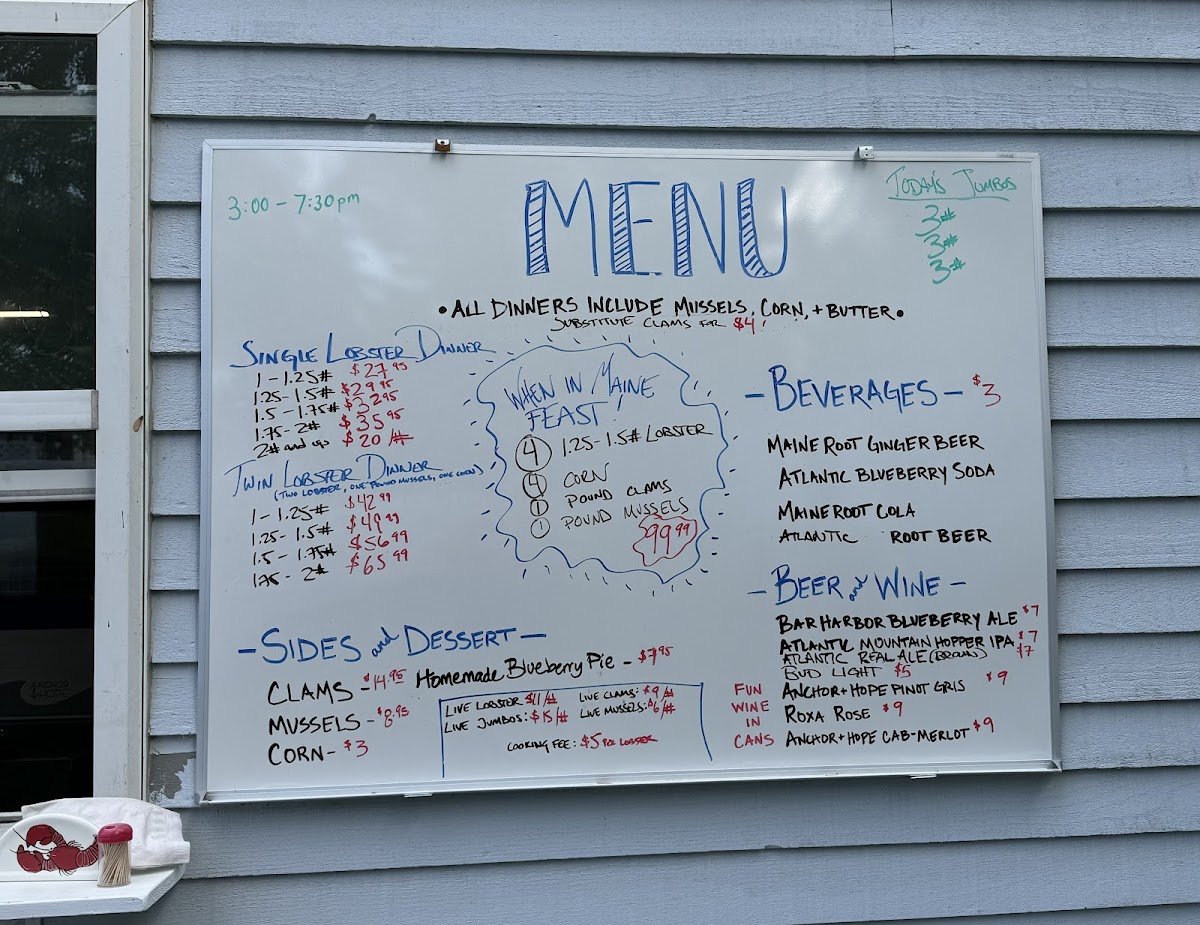 3:00 - 7:30pm
MENU
TODAY'S JUMBOS
3#
3#
3#
• ALL DINNERS INCLUDE MUSSELS, CORN, + BUTTER •
SUBSTITUTE CLAMS FOR $4!
SINGLE LOBSTER DINNER
1 - 1.25# $27.95
1.25 - 1.5# $29.95
1.5 - 1.75# $32.95
1.75 - 2# $35.95
2# and up $20/#
TWIN LOBSTER DINNER
(TWO LOBSTER, ONE POUND MUSSELS, ONE CORN)
1 - 1.25# $42.99
1.25 - 1.5# $49.99
1.5 - 1.75# $56.99
1.75 - 2# $65.99
WHEN IN MAINE
FEAST!
4 1.25 - 1.5# LOBSTER
4 CORN
1 POUND CLAMS
1 POUND MUSSELS
99.99
- BEVERAGES - $3
MAINE ROOT GINGER BEER
ATLANTIC BLUEBERRY SODA
MAINE ROOT COLA
ATLANTIC ROOT BEER
- BEER and WINE -
BAR HARBOR BLUEBERRY ALE $7
ATLANTIC MOUNTAIN HOPPER IPA $7
ATLANTIC REAL ALE (BROWN) $7
BUD LIGHT $5
FUN WINE IN CANS
ANCHOR + HOPE PINOT GRIS $9
ROXA ROSE $9
ANCHOR + HOPE CAB-MERLOT $9
- SIDES and DESSERT -
CLAMS - $14.95
MUSSELS - $8.95
CORN - $3
Homemade Blueberry Pie - $7.95
LIVE LOBSTER $11/# LIVE CLAMS: $9/#
LIVE JUMBOS: $15/# LIVE MUSSELS: $6/#
COOKING FEE: $5 PER LOBSTER
ANCHOR
& HOPE